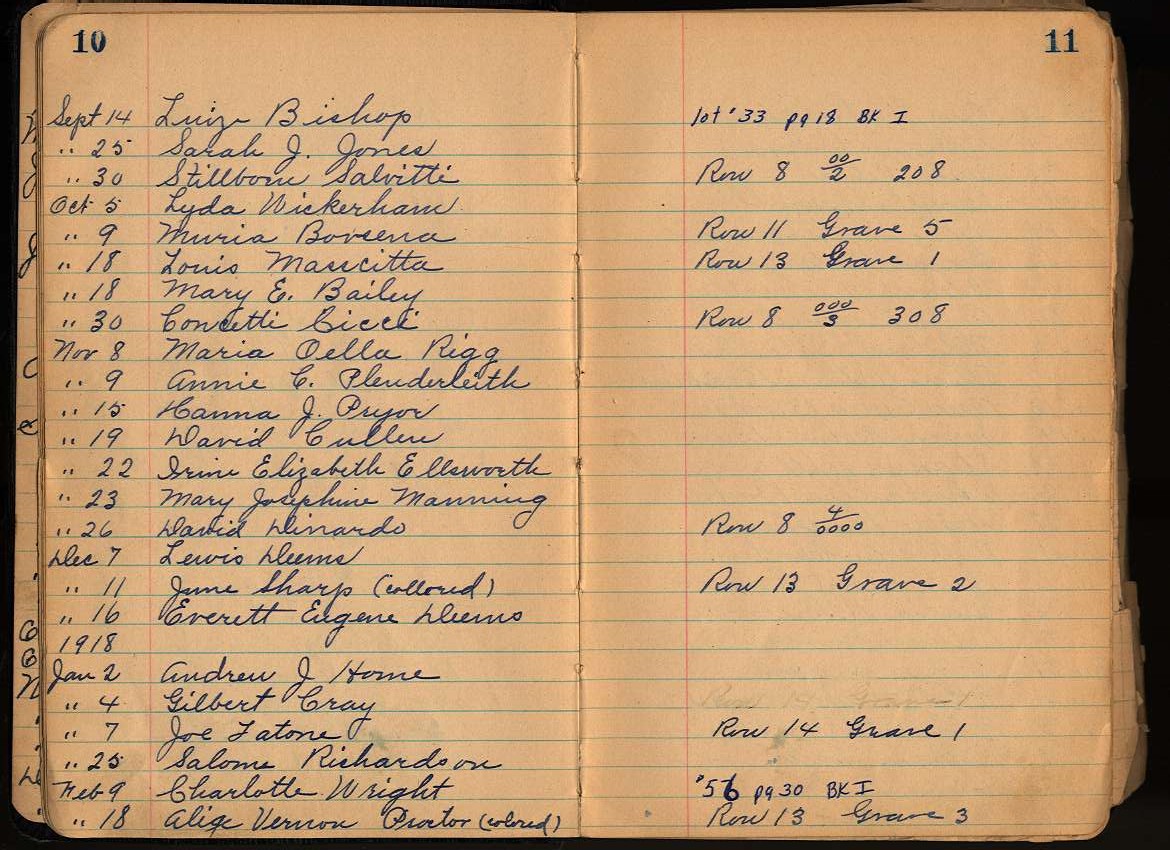 10
11
Sept 14 Luize Bishop lot #33 pg 18 BK I
" 25 Sarah J. Jones
" 30 Stillborn Salvitti Row 8 00/2 208
Oct 5 Lyda Wickerham
" 9 Muria Borsena Row 11 Grave 5
" 18 Louis Mascitta Row 13 Grave 1
" 18 Mary E. Bailey
" 30 Concetti Cicci Row 8 000/3 308
Nov 8 Maria Della Rigg
" 9 Annie C. Plenderleith
" 15 Hanna J. Pryor
" 19 David Cullen
" 22 Irine Elizabeth Ellsworth
" 23 Mary Josephine Manning
" 26 David Dinardo Row 8 4/0000
Dec 7 Lewis Deems
" 11 June Sharp (collored) Row 13 Grave 2
" 16 Everett Eugene Deems
1918
Jan 2 Andrew J Horne
" 4 Gilbert Cray
" 7 Joe Fatone Row 14 Grave 1
" 25 Salome Richardson
Feb 9 Charlotte Wright #56 pg 30 BK I
" 18 Alige Vernon Proctor (colored) Row 13 Grave 3